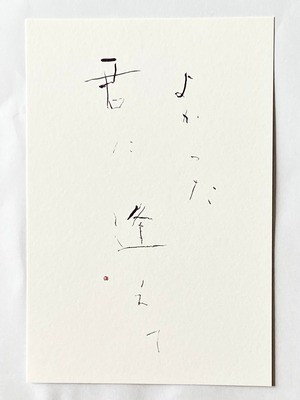 よかった
君に逢えて